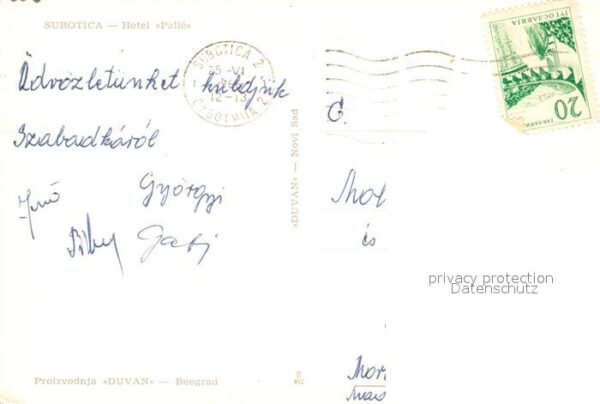 SUBOTICA — Hotel »Palić«
Üdvözletünket küldjük
Szabadkáról
Jenő
Györgyi
Gabi
SUBOTICA 2
25-VI
12-13
СУБОТИЦА 2
»DUVAN« — Novi Sad
ЈУГОСЛАВИЈА
20
G.
és
privacy protection
Datenschutz
Proizvodnja »DUVAN« — Beograd